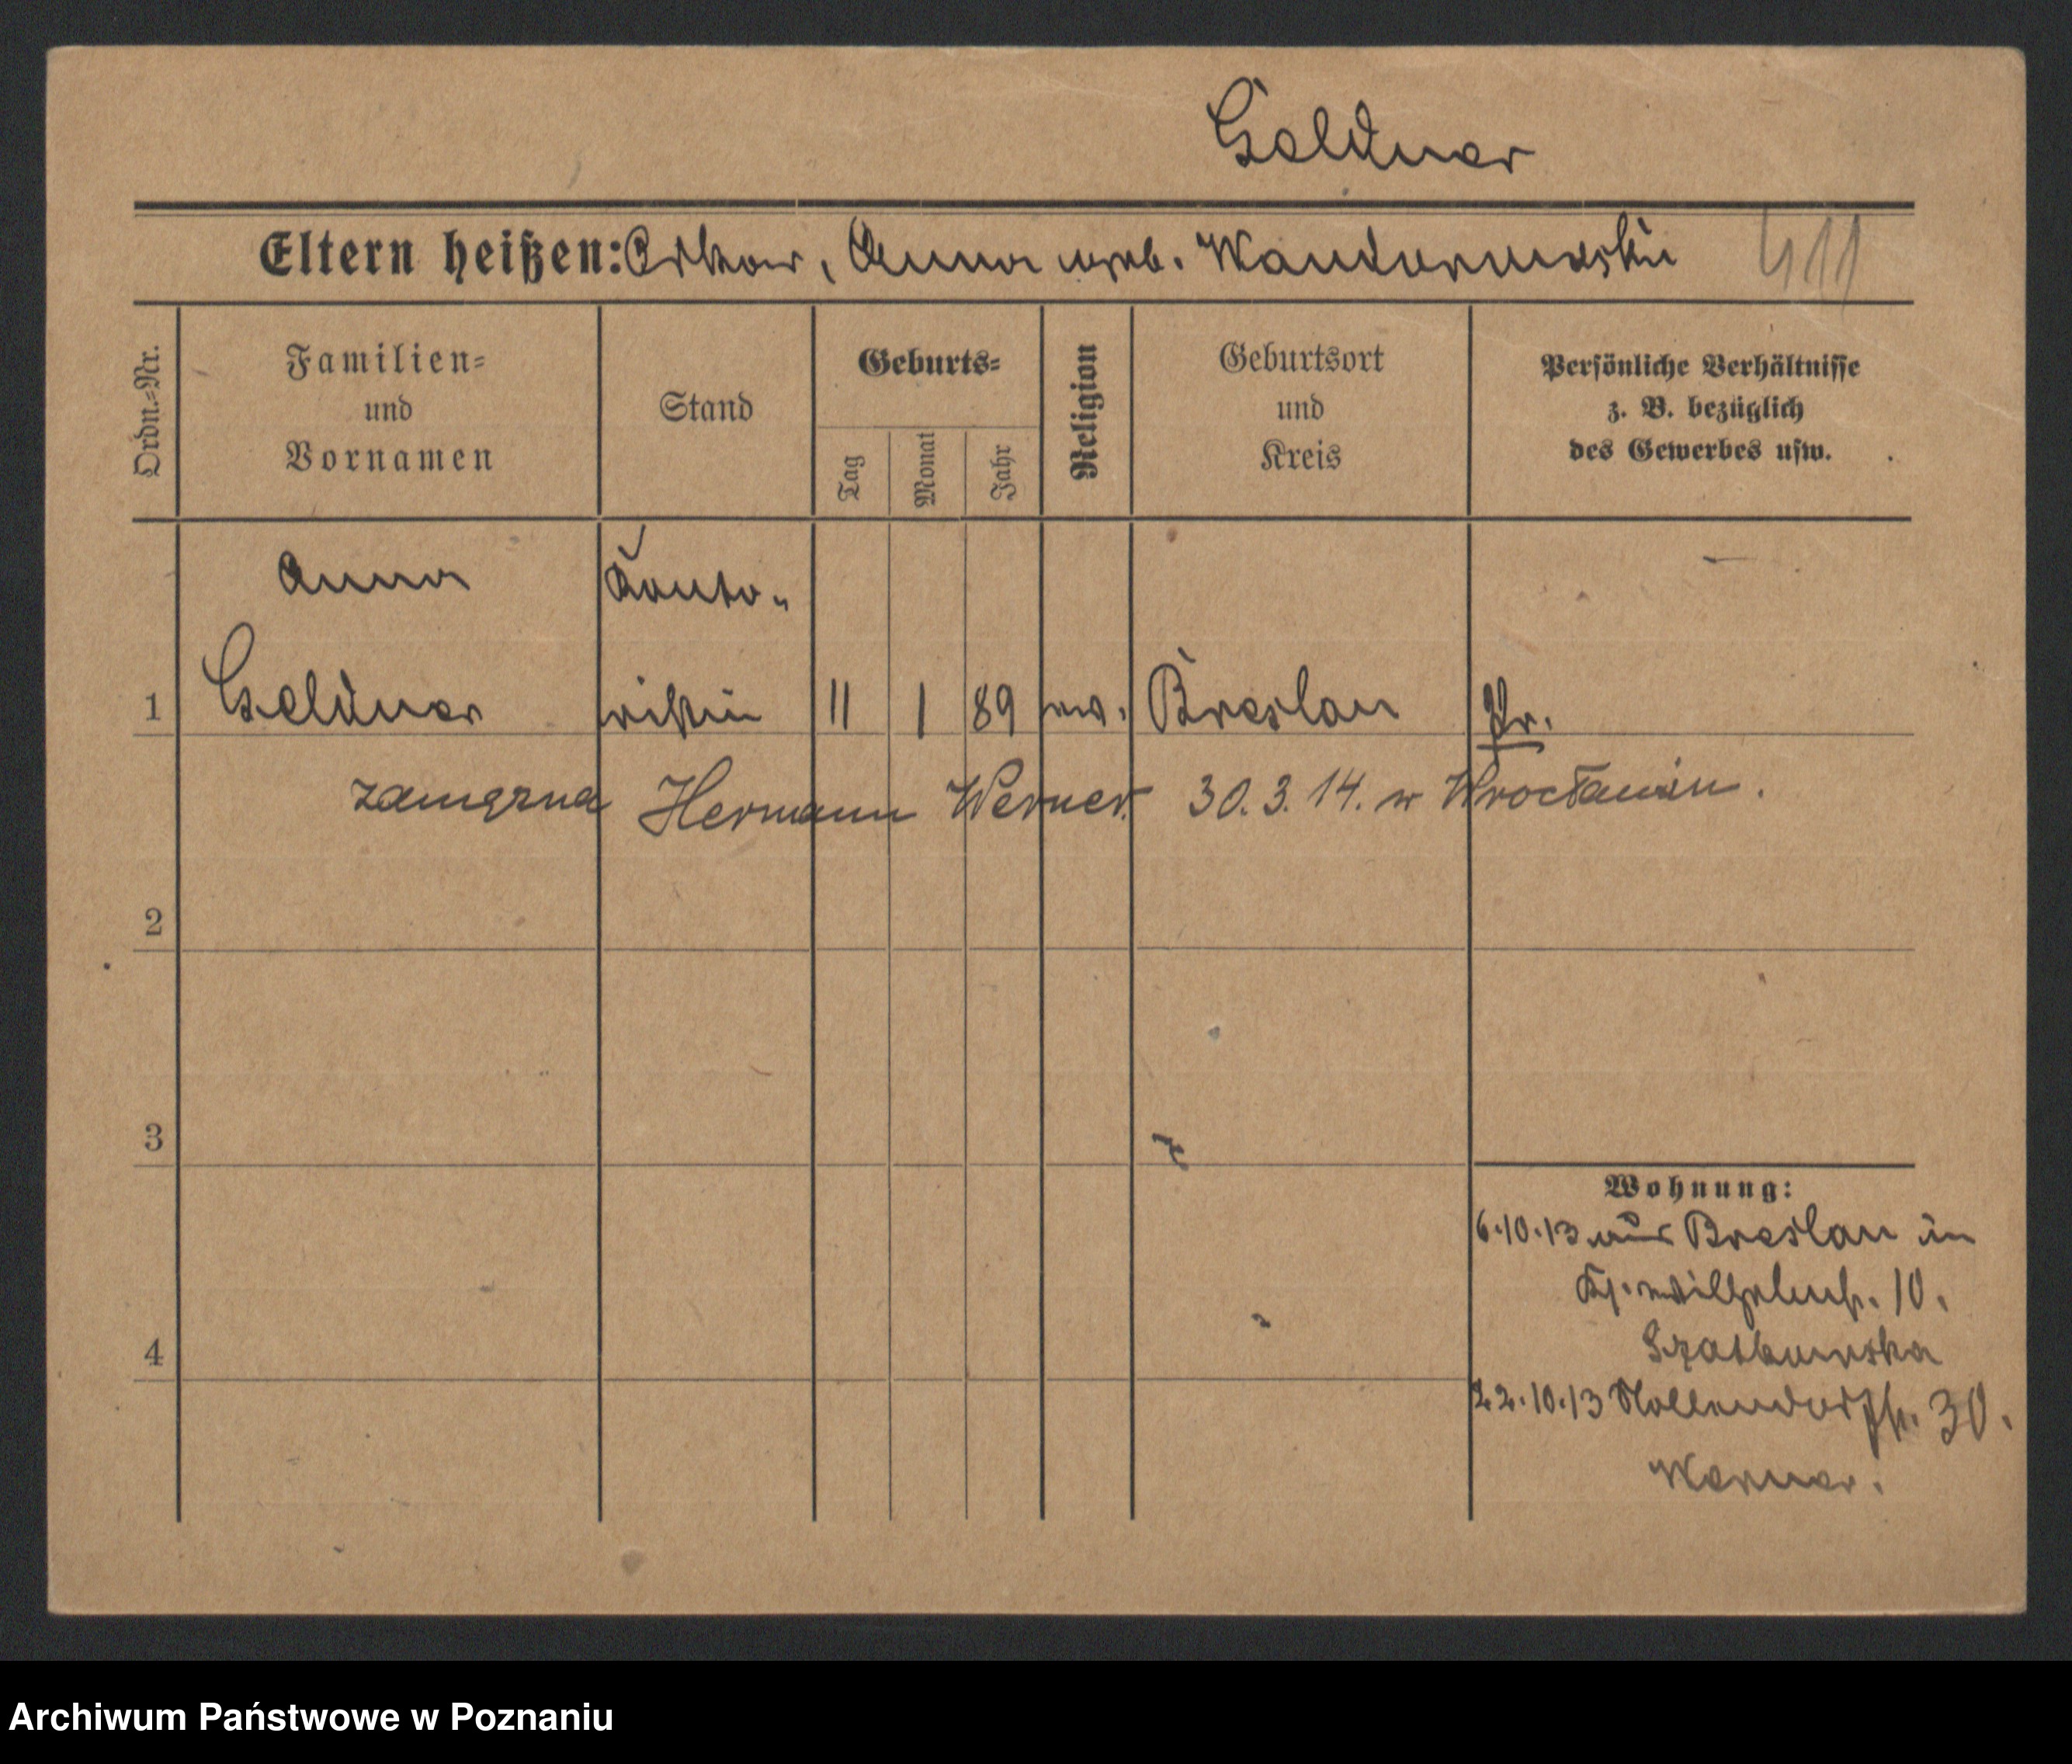 Geldner
Eltern heißen: Oskar, Anna geb. Wandernowska
411
Ordn.=Nr.
Familien=
und
Vornamen
Stand
Geburts=
Tag
Monat
Jahr
Religion
Geburtsort
und
Kreis
Persönliche Verhältnisse
z. B. bezüglich
des Gewerbes usw.
Anna Konto-
1 Geldner ristin 11 1 89 ev. Breslau Pr.
zamężna Hermann Werner. 30.3.14. w Wrocławiu.
2
3
4
Wohnung:
6.10.13 aus Breslau in
Ks. Wilhelmstr. 10.
22.10.13 Nollendorfstr. 30.
Werner.
Archiwum Państwowe w Poznaniu